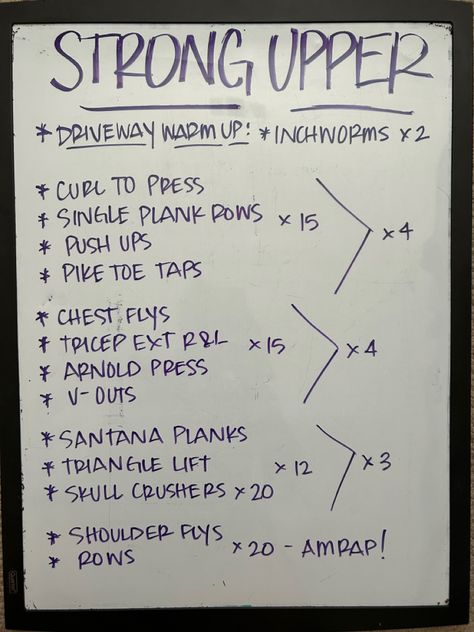 STRONG UPPER
* DRIVEWAY WARM UP! * INCHWORMS x2
* CURL TO PRESS
* SINGLE PLANK ROWS x 15
* PUSH UPS
* PIKE TOE TAPS
x4
* CHEST FLYS
* TRICEP EXT R&L x15
* ARNOLD PRESS
* V-OUTS
x4
* SANTANA PLANKS
* TRIANGLE LIFT x 12
* SKULL CRUSHERS x 20
x3
* SHOULDER FLYS
* ROWS
x 20 - AMRAP!